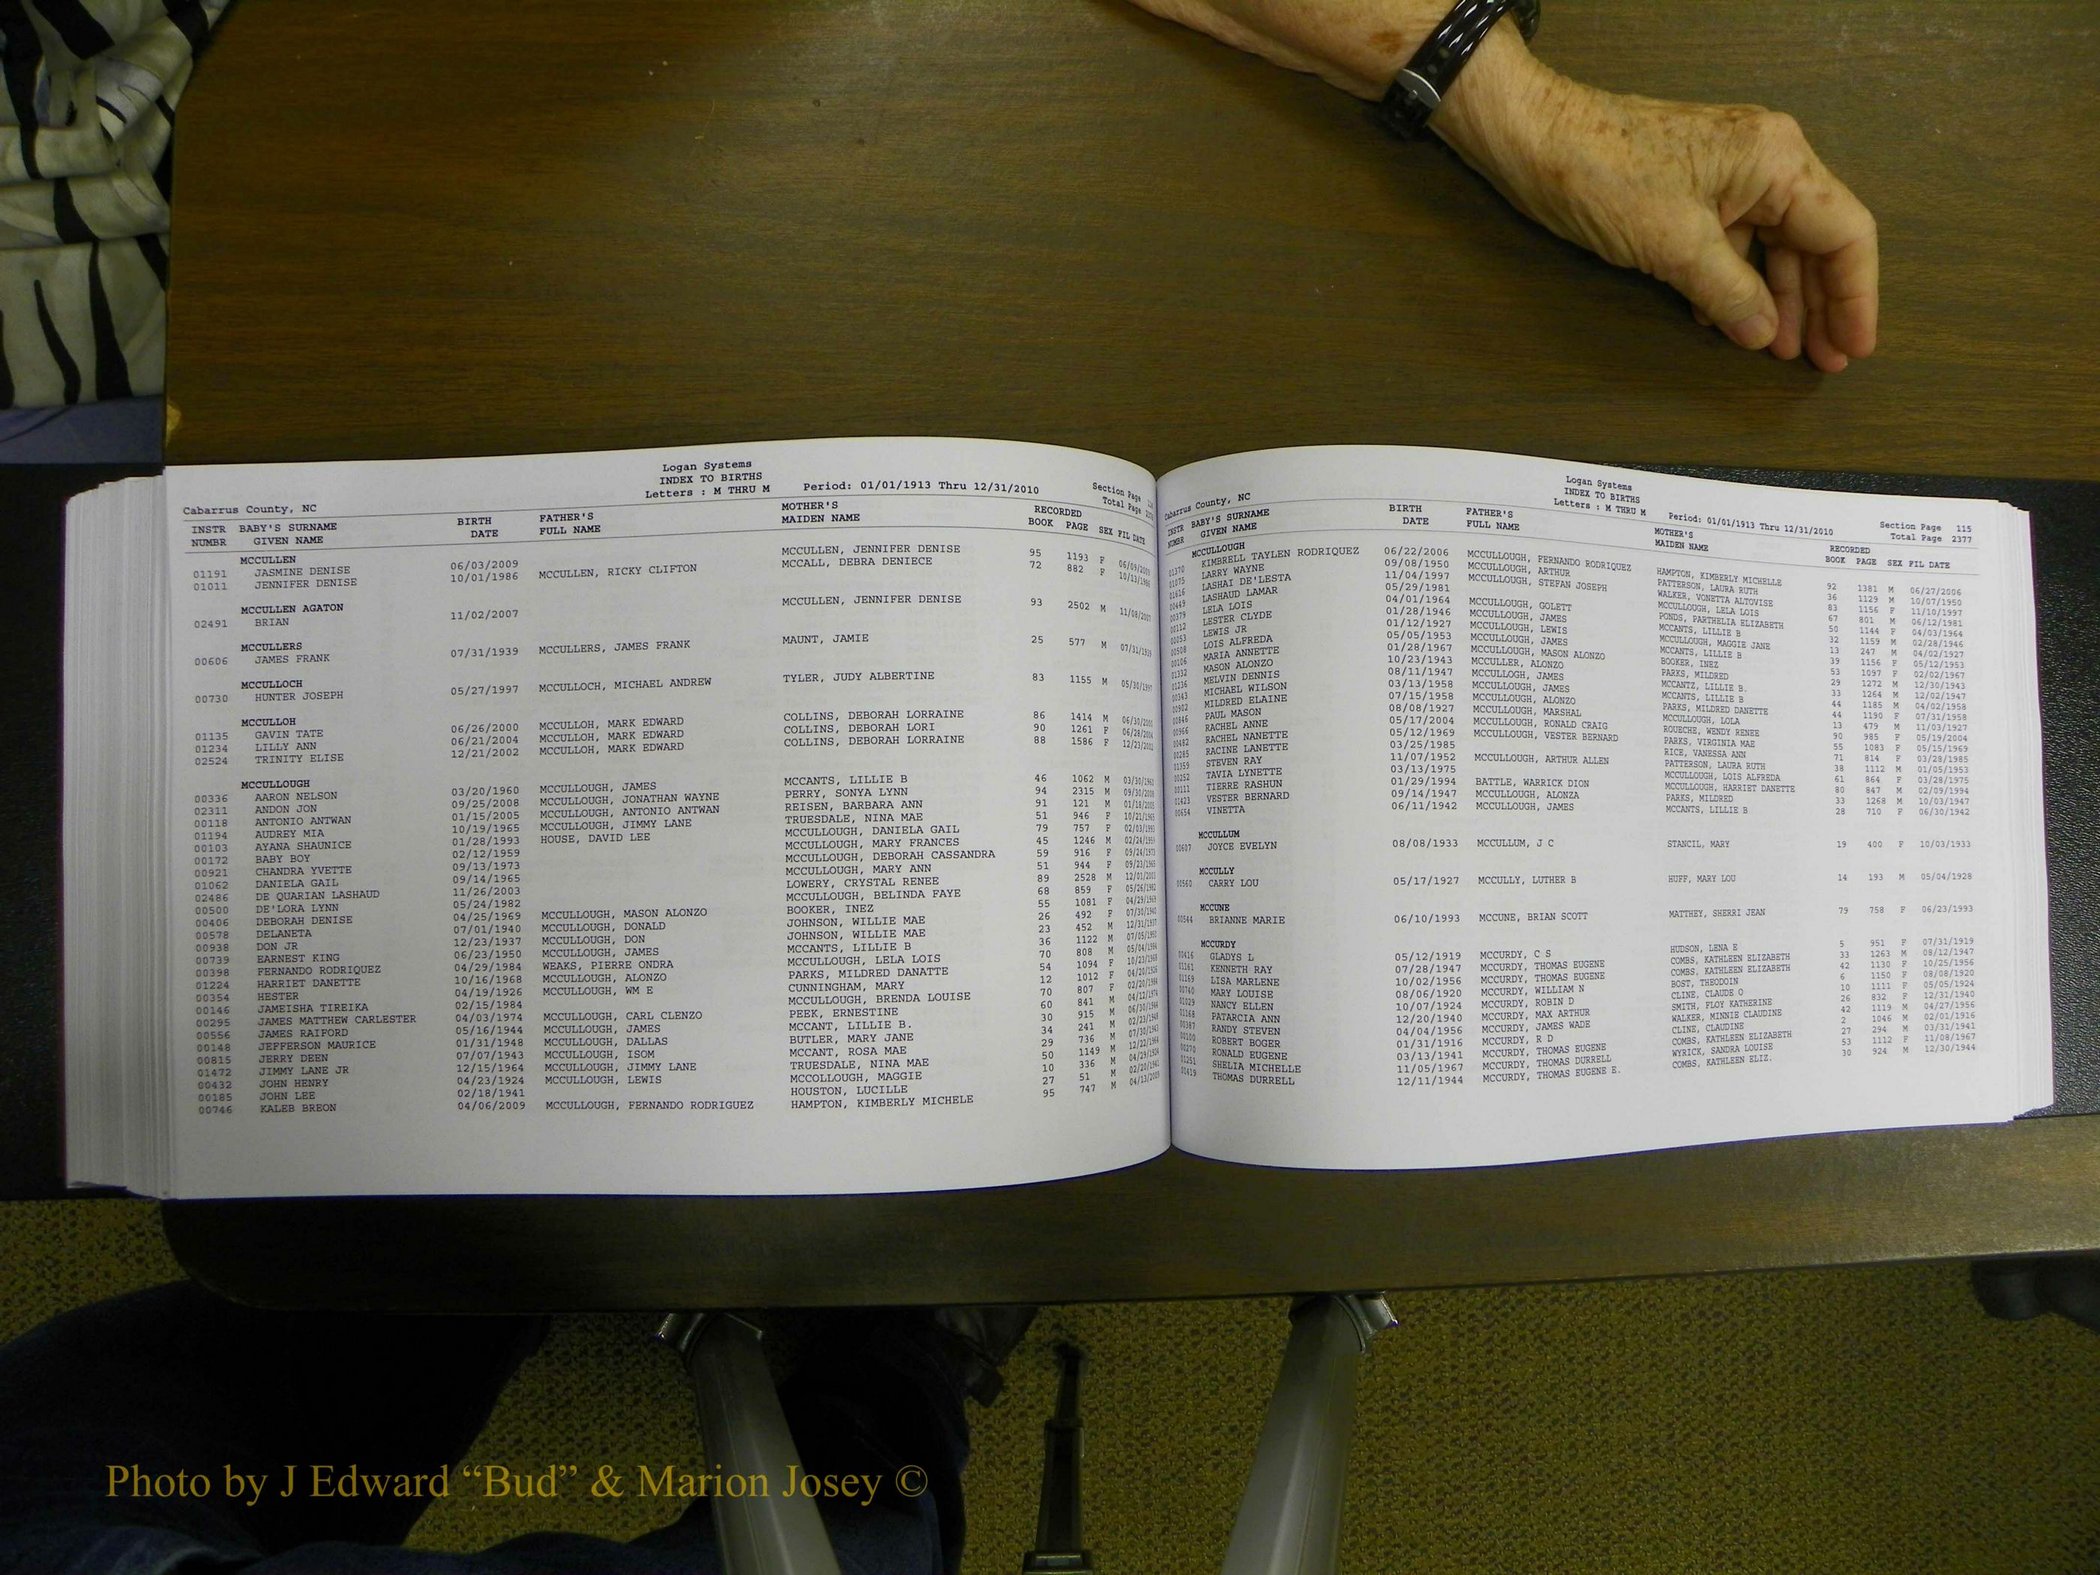 Logan Systems
INDEX TO BIRTHS
Letters : M THRU M Period: 01/01/1913 Thru 12/31/2010 Section Page
Total Page
Cabarrus County, NC
INSTR BABY'S SURNAME BIRTH FATHER'S MOTHER'S RECORDED
NUMBR GIVEN NAME DATE FULL NAME MAIDEN NAME BOOK PAGE SEX FIL DATE
MCCULLEN
01191 JASMINE DENISE 06/03/2009 MCCULLEN, JENNIFER DENISE 95 1193 F 06/09/2009
01011 JENNIFER DENISE 10/01/1986 MCCULLEN, RICKY CLIFTON MCCALL, DEBRA DENIECE 72 882 F 10/13/1986
MCCULLEN AGATON
02491 BRIAN 11/02/2007 MCCULLEN, JENNIFER DENISE 93 2502 M 11/08/2007
MCCULLERS
00606 JAMES FRANK 07/31/1939 MCCULLERS, JAMES FRANK MAUNT, JAMIE 25 577 M
MCCULLOCH
00730 HUNTER JOSEPH 05/27/1997 MCCULLOCH, MICHAEL ANDREW TYLER, JUDY ALBERTINE 83 1155 M 05/30/1997
MCCULLOH
01135 GAVIN TATE 06/26/2000 MCCULLOH, MARK EDWARD COLLINS, DEBORAH LORRAINE 86 1414 M 06/30/2000
01234 LILLY ANN 06/21/2004 MCCULLOH, MARK EDWARD COLLINS, DEBORAH LORI 90 1261 F 06/28/2004
02524 TRINITY ELISE 12/21/2002 MCCULLOH, MARK EDWARD COLLINS, DEBORAH LORRAINE 88 1586 F 12/23/2002
MCCULLOUGH
00336 AARON NELSON 03/20/1960 MCCULLOUGH, JAMES MCCANTS, LILLIE B 46 1062 M
02311 ANDON JON 09/25/2008 MCCULLOUGH, JONATHAN WAYNE PERRY, SONYA LYNN 94 2315 M 09/30/2008
00118 ANTONIO ANTWAN 01/15/2005 MCCULLOUGH, ANTONIO ANTWAN REISEN, BARBARA ANN 91 121 M 01/18/2005
01194 AUDREY MIA 10/19/1965 MCCULLOUGH, JIMMY LANE TRUESDALE, NINA MAE 51 946 F 10/21/1965
00103 AYANA SHAUNICE 01/28/1993 HOUSE, DAVID LEE MCCULLOUGH, DANIELA GAIL 79 757 F 02/03/1993
00172 BABY BOY 02/12/1959 MCCULLOUGH, MARY FRANCES 45 1246 M 02/24/1959
00921 CHANDRA YVETTE 09/13/1973 MCCULLOUGH, DEBORAH CASSANDRA 59 916 F 09/24/1973
01062 DANIELA GAIL 09/14/1965 MCCULLOUGH, MARY ANN 51 944 F 09/23/1965
02486 DE QUARIAN LASHAUD 11/26/2003 LOWERY, CRYSTAL RENEE 89 2528 M 12/01/2003
00500 DE'LORA LYNN 05/24/1982 MCCULLOUGH, BELINDA FAYE 68 859 F 05/26/1982
00406 DEBORAH DENISE 04/25/1969 MCCULLOUGH, MASON ALONZO BOOKER, INEZ 55 1081 F 04/29/1969
00578 DELANETA 07/01/1940 MCCULLOUGH, DONALD JOHNSON, WILLIE MAE 26 492 F 07/30/1940
00938 DON JR 12/23/1937 MCCULLOUGH, DON JOHNSON, WILLIE MAE 23 452 M 12/31/1937
00739 EARNEST KING 06/23/1950 MCCULLOUGH, JAMES MCCANTS, LILLIE B 36 1122 M
00398 FERNANDO RODRIQUEZ 04/29/1984 WEAKS, PIERRE ONDRA MCCULLOUGH, LELA LOIS 70 808 M 05/04/1984
01224 HARRIET DANETTE 10/16/1968 MCCULLOUGH, ALONZO PARKS, MILDRED DANATTE 54 1094 F 10/23/1968
00354 HESTER 04/19/1926 MCCULLOUGH, WM E CUNNINGHAM, MARY 12 1012 F 04/20/1926
00146 JAMEISHA TIREIKA 02/15/1984 MCCULLOUGH, BRENDA LOUISE 70 807 F 02/20/1984
00295 JAMES MATTHEW CARLESTER 04/03/1974 MCCULLOUGH, CARL CLENZO PEEK, ERNESTINE 60 841 M 04/12/1974
00556 JAMES RAIFORD 05/16/1944 MCCULLOUGH, JAMES MCCANT, LILLIE B. 30 915 M
00148 JEFFERSON MAURICE 01/31/1948 MCCULLOUGH, DALLAS BUTLER, MARY JANE 34 241 M
00815 JERRY DEEN 07/07/1943 MCCULLOUGH, ISOM MCCANT, ROSA MAE 29 736 M
01472 JIMMY LANE JR 12/15/1964 MCCULLOUGH, JIMMY LANE TRUESDALE, NINA MAE 50 1149 M
00432 JOHN HENRY 04/23/1924 MCCULLOUGH, LEWIS MCCOLLOUGH, MAGGIE 10 336 M
00185 JOHN LEE 02/18/1941 HOUSTON, LUCILLE 27 51 M
00746 KALEB BREON 04/06/2009 MCCULLOUGH, FERNANDO RODRIGUEZ HAMPTON, KIMBERLY MICHELE 95 747 M 04/13/2009
Logan Systems
INDEX TO BIRTHS
Letters : M THRU M Period: 01/01/1913 Thru 12/31/2010 Section Page 115
Total Page 2377
Cabarrus County, NC
INSTR BABY'S SURNAME BIRTH FATHER'S MOTHER'S RECORDED
NUMBR GIVEN NAME DATE FULL NAME MAIDEN NAME BOOK PAGE SEX FIL DATE
MCCULLOUGH
01370 KIMBRELL TAYLEN RODRIQUEZ 06/22/2006 MCCULLOUGH, FERNANDO RODRIQUEZ HAMPTON, KIMBERLY MICHELLE 92 1381 M 06/27/2006
01075 LARRY WAYNE 09/08/1950 MCCULLOUGH, ARTHUR PATTERSON, LAURA RUTH 36 1129 M 10/07/1950
01616 LASHAI DE'LESTA 11/04/1997 MCCULLOUGH, STEFAN JOSEPH WALKER, VONETTA ALTOVISE 83 1156 F 11/10/1997
00449 LASHAUD LAMAR 05/29/1981 MCCULLOUGH, LELA LOIS 67 801 M 06/12/1981
00379 LELA LOIS 04/01/1964 MCCULLOUGH, GOLETT PONDS, PARTHELIA ELIZABETH 50 1144 F 04/03/1964
00112 LESTER CLYDE 01/28/1946 MCCULLOUGH, JAMES MCCANTS, LILLIE B 32 1159 M 02/28/1946
00053 LEWIS JR 01/12/1927 MCCULLOUGH, LEWIS MCCULLOUGH, MAGGIE JANE 13 247 M 04/02/1927
00508 LOIS ALFREDA 05/05/1953 MCCULLOUGH, JAMES MCCANTS, LILLIE B 39 1156 F 05/12/1953
00106 MARIA ANNETTE 01/28/1967 MCCULLOUGH, MASON ALONZO BOOKER, INEZ 53 1097 F 02/02/1967
01332 MASON ALONZO 10/23/1943 MCCULLER, ALONZO PARKS, MILDRED 29 1272 M 12/30/1943
01236 MELVIN DENNIS 08/11/1947 MCCULLOGH, JAMES MCCANTZ, LILLIE B. 33 1264 M 12/02/1947
00343 MICHAEL WILSON 03/13/1958 MCCULLOUGH, JAMES MCCANTS, LILLIE B 44 1185 M 04/02/1958
00902 MILDRED ELAINE 07/15/1958 MCCULLOUGH, ALONZO PARKS, MILDRED DANETTE 44 1190 F 07/31/1958
00846 PAUL MASON 08/08/1927 MCCULLOUGH, MARSHAL MCCULLOUGH, LOLA 13 479 M 11/03/1927
00966 RACHEL ANNE 05/17/2004 MCCULLOUGH, RONALD CRAIG ROUECHE, WENDY RENEE 90 985 F 05/19/2004
00482 RACHEL NANETTE 05/12/1969 MCCULLOUGH, VESTER BERNARD PARKS, VIRGINIA MAE 55 1083 F 05/15/1969
00285 RACINE LANETTE 03/25/1985 RICE, VANESSA ANN 71 814 F 03/28/1985
01359 STEVEN RAY 11/07/1952 MCCULLOUGH, ARTHUR ALLEN PATTERSON, LAURA RUTH 38 1112 M 01/05/1953
00252 TAVIA LYNETTE 03/13/1975 MCCULLOUGH, LOIS ALFREDA 61 864 F 03/28/1975
00111 TIERRE RASHUN 01/29/1994 BATTLE, WARRICK DION MCCULLOUGH, HARRIET DANETTE 80 847 M 02/09/1994
01423 VESTER BERNARD 09/14/1947 MCCULLOUGH, ALONZA PARKS, MILDRED 33 1268 M 10/03/1947
00654 VINETTA 06/11/1942 MCCULLOUGH, JAMES MCCANTS, LILLIE B 28 710 F 06/30/1942
MCCULLUM
00607 JOYCE EVELYN 08/08/1933 MCCULLUM, J C STANCIL, MARY 19 400 F 10/03/1933
MCCULLY
00560 CARRY LOU 05/17/1927 MCCULLY, LUTHER B HUFF, MARY LOU 14 193 M 05/04/1928
MCCUNE
00544 BRIANNE MARIE 06/10/1993 MCCUNE, BRIAN SCOTT MATTHEY, SHERRI JEAN 79 758 F 06/23/1993
MCCURDY
00416 GLADYS L 05/12/1919 MCCURDY, C S HUDSON, LENA E 5 951 F 07/31/1919
01161 KENNETH RAY 07/28/1947 MCCURDY, THOMAS EUGENE COMBS, KATHLEEN ELIZABETH 33 1263 M 08/12/1947
01159 LISA MARLENE 10/02/1956 MCCURDY, THOMAS EUGENE COMBS, KATHLEEN ELIZABETH 42 1130 F 10/25/1956
00740 MARY LOUISE 08/06/1920 MCCURDY, WILLIAM N BOST, THEODOIN 6 1150 F 08/08/1920
01029 NANCY ELLEN 10/07/1924 MCCURDY, ROBIN D CLINE, CLAUDE O 10 1111 F 05/05/1924
01168 PATARCIA ANN 12/20/1940 MCCURDY, MAX ARTHUR SMITH, FLOY KATHERINE 26 832 F 12/31/1940
00387 RANDY STEVEN 04/04/1956 MCCURDY, JAMES WADE WALKER, MINNIE CLAUDINE 42 1119 M 04/27/1956
00100 ROBERT BOGER 01/31/1916 MCCURDY, R D CLINE, CLAUDINE 2 1046 M 02/01/1916
00270 RONALD EUGENE 03/13/1941 MCCURDY, THOMAS EUGENE COMBS, KATHLEEN ELIZABETH 27 294 M 03/31/1941
01251 SHELIA MICHELLE 11/05/1967 MCCURDY, THOMAS DURRELL WYRICK, SANDRA LOUISE 53 1112 F 11/08/1967
01619 THOMAS DURRELL 12/11/1944 MCCURDY, THOMAS EUGENE E. COMBS, KATHLEEN ELIZ. 30 924 M 12/30/1944
Photo by J Edward “Bud” & Marion Josey ©